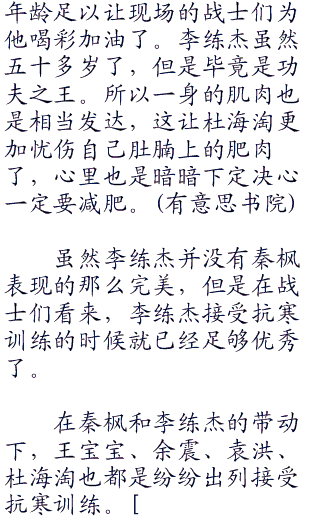 年龄足以让现场的战士们为
他喝彩加油了。李练杰虽然
五十多岁了，但是毕竟是功
夫之王。所以一身的肌肉也
是相当发达，这让杜海淘更
加忧伤自己肚腩上的肥肉
了，心里也是暗暗下定决心
一定要减肥。(有意思书院)
虽然李练杰并没有秦枫
表现的那么完美，但是在战
士们看来，李练杰接受抗寒
训练的时候就已经足够优秀
了。
在秦枫和李练杰的带动
下，王宝宝、余震、袁洪、
杜海淘也都是纷纷出列接受
抗寒训练。[